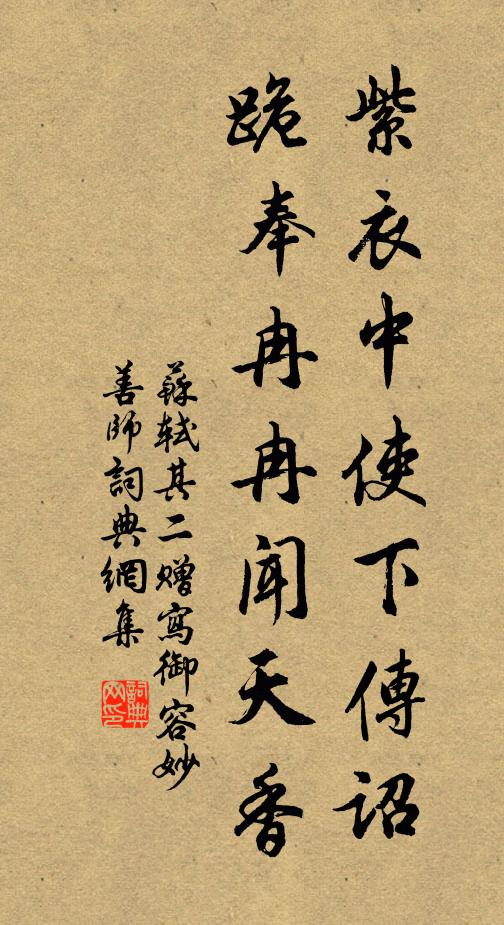 紫衣中使下傳詔
跪奉冉冉聞天香
蘇軾其二贈寫御容妙
善師詞典網集
詞典
网印